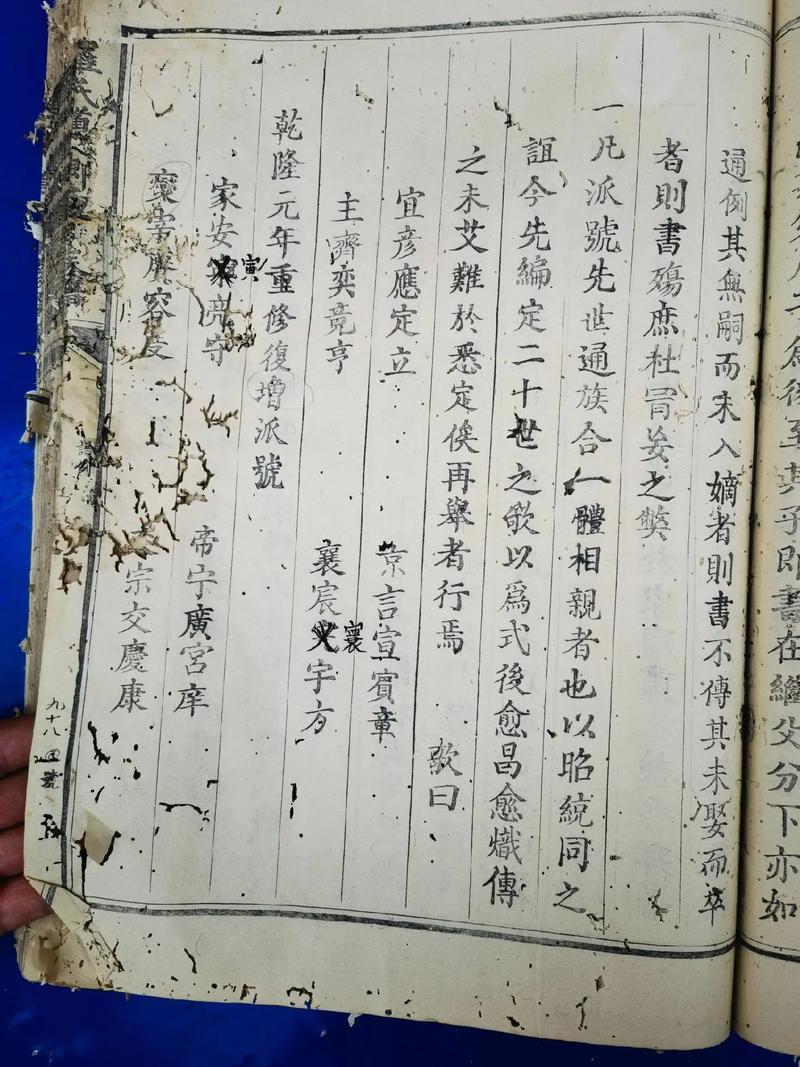 通例其無嗣而未入嫡者則書不傳其未娶而卒
者則書殤庶杜冒妄之獘
一凡派號先世通族合一體相親者也以昭統同之
誼今先編定二十世之歌以爲式後愈昌愈熾傳
之未艾難於悉定俟再舉者行焉 歌曰
宜彦應定立 京言宣賓章
主齊奕竟亨 襄宸寰宇方
乾隆元年重修復增派號
家安寅亮守 帝宁廣宮庠
稟常 容 宗交慶康
九十八
為後至其子即書在繼父分下亦如